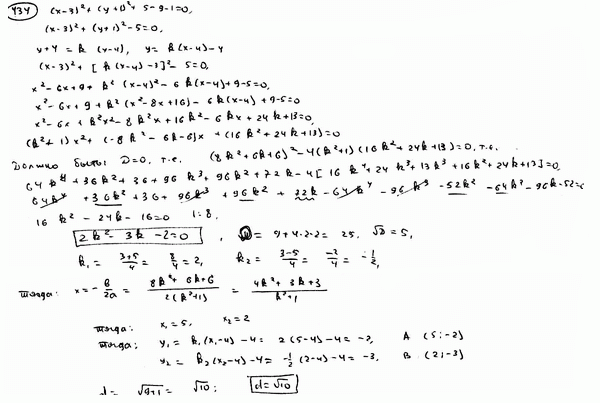 434 (x-3)²+(y+1)²+5-9-1=0,
(x-3)²+(y+1)²-5=0,
y+4 = k(x-4), y= k(x-4)-4
(x-3)²+[k(x-4)-3]²-5=0,
x²-6x+9+k²(x-4)²-6k(x-4)+9-5=0,
x²-6x+9+k²(x²-8x+16)-6k(x-4)+9-5=0
x²-6x+k²x²-8k²x+16k²-6kx+24k+13=0,
(k²+1)x²+(-8k²-6k-6)x+(16k²+24k+13)=0
Должно быть D=0, т.е. (8k²+6k+6)²-4(k²+1)(16k²+24k+13)=0, т.е.
64k⁴+36k²+36+96k³+96k²+72k-4[16k⁴+24k³+13k²+16k²+24k+13]=0,
64k⁴+36k²+36+96k³+96k²+72k-64k⁴-96k³-52k²-64k²-96k-52=0
16k²-24k-16=0 1:8,
2k²-3k-2=0, D=9+4·2·2=25, √D=5,
k₁=(3+5)/4=8/4=2, k₂=(3-5)/4=-2/4=-1/2,
тогда: x=-b/2a=(8k²+6k+6)/2(k²+1)=(4k²+3k+3)/(k²+1)
тогда: x₁=5, x₂=2
тогда: y₁=k₁(x₁-4)-4=2(5-4)-4=-2, A (5;-2)
y₂=k₂(x₂-4)-4=-1/2(2-4)-4=-3, B (2;-3)
d=√9+1=√10; d=√10